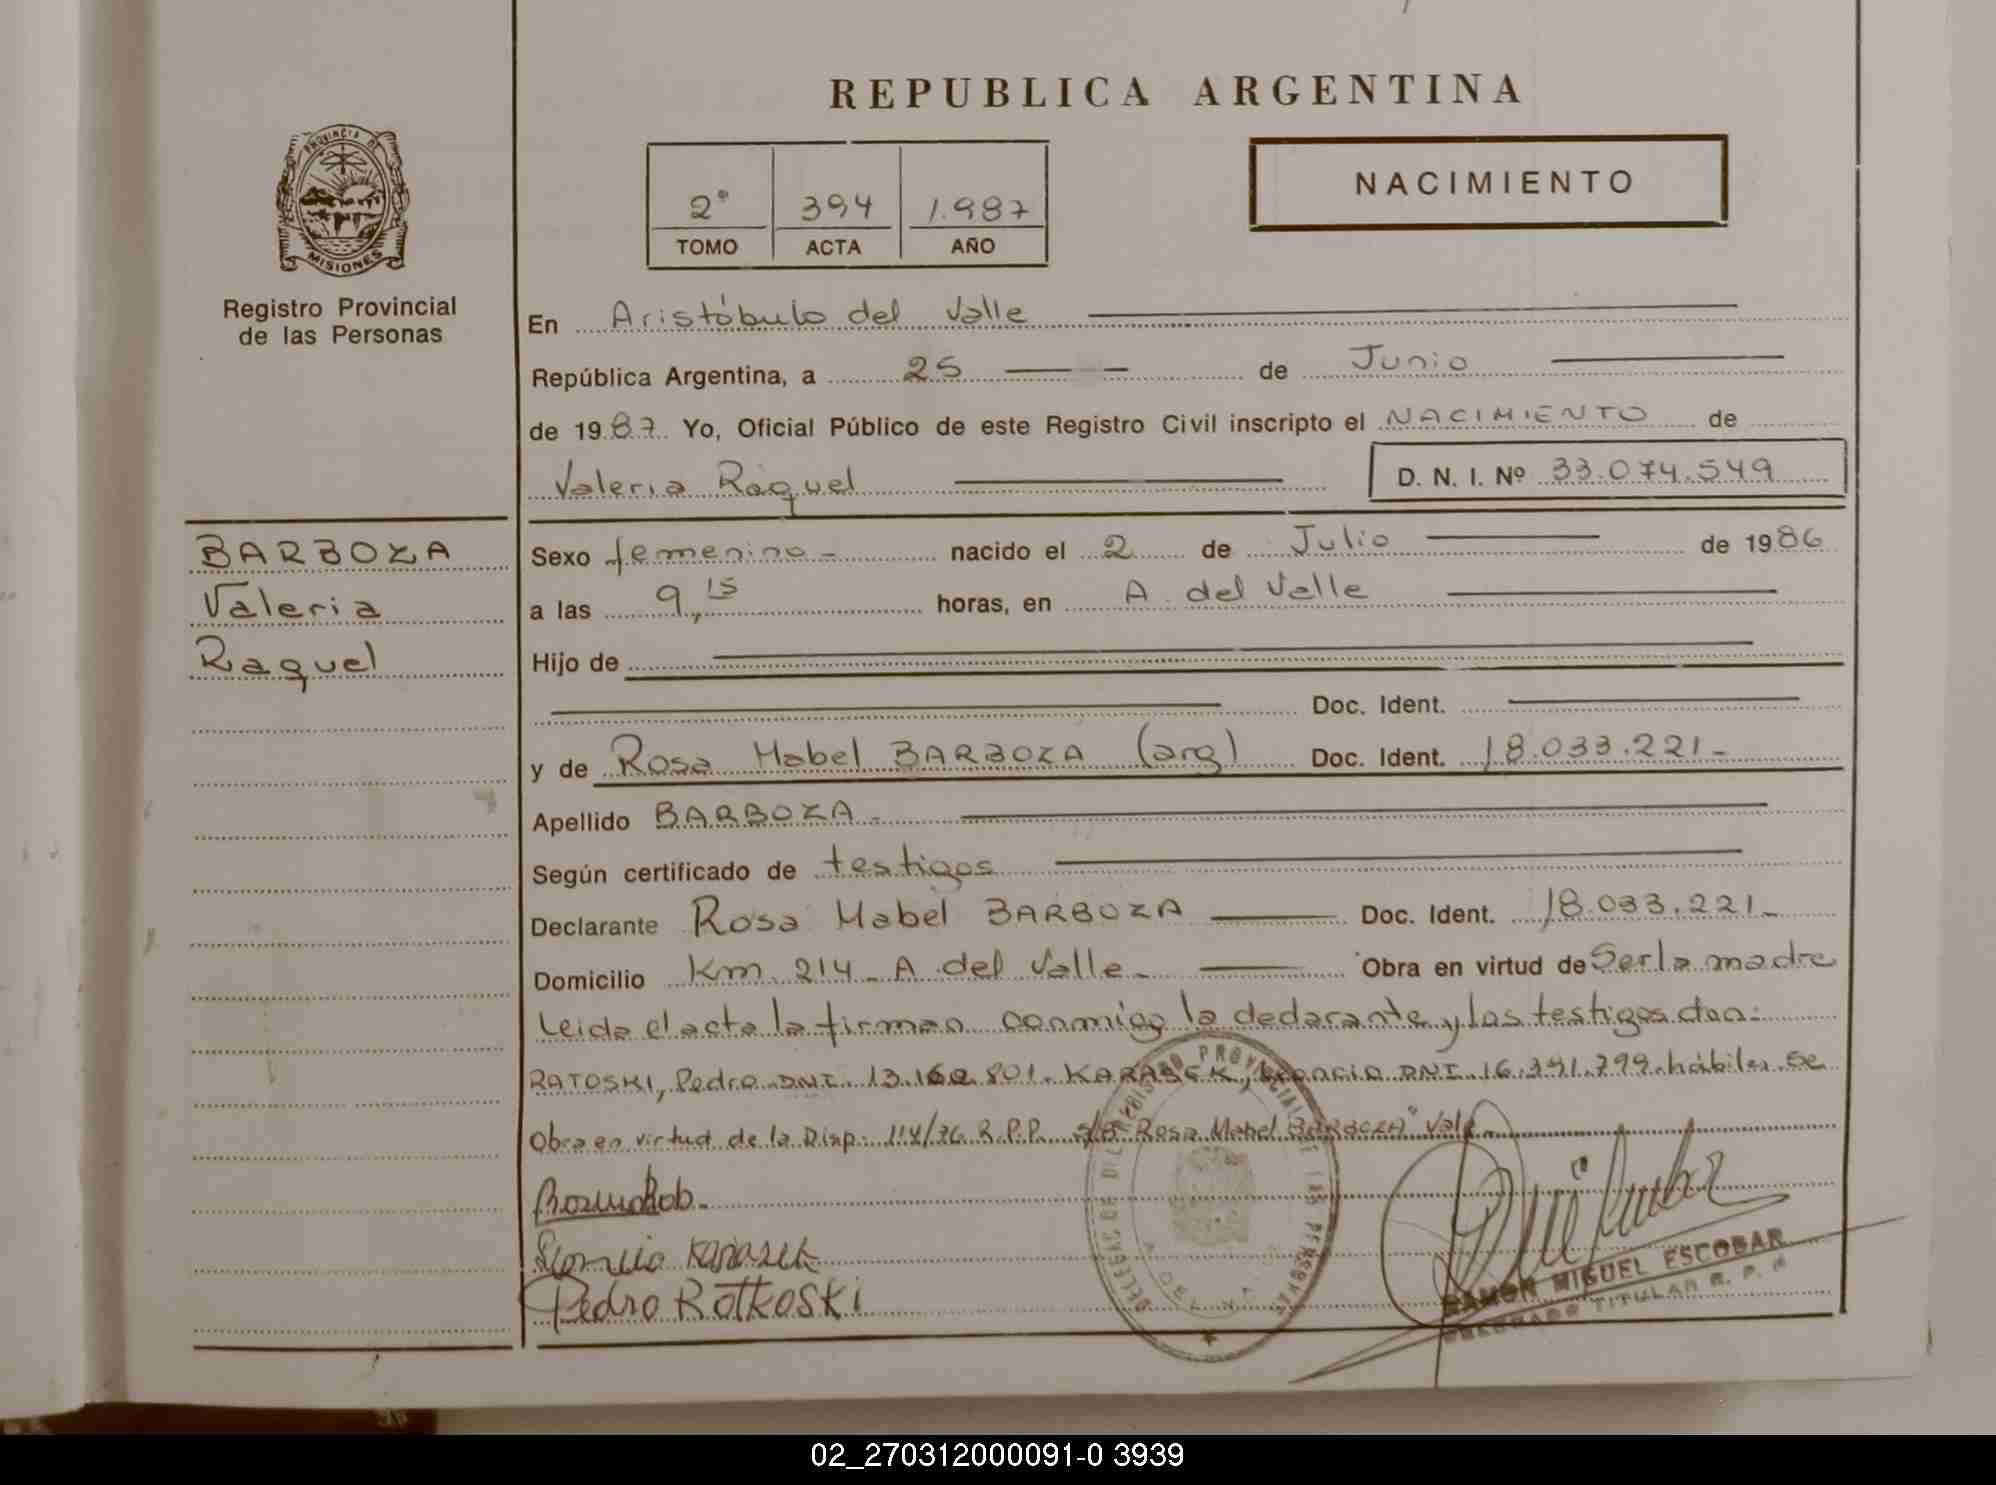 REPUBLICA ARGENTINA
PROVINCIA DE
MISIONES
Registro Provincial
de las Personas
2° 394 1.987
TOMO ACTA AÑO
NACIMIENTO
En Aristóbulo del Valle
República Argentina, a 25 de Junio
de 1987. Yo, Oficial Público de este Registro Civil inscripto el NACIMIENTO de
Valeria Raquel D. N. I. Nº 33.074.549
BARBOZA
Valeria
Raquel
Sexo femenino - nacido el 2 de Julio de 1986
a las 9,15 horas, en A. del Valle
Hijo de
Doc. Ident.
y de Rosa Mabel BARBOZA (arg) Doc. Ident. 18.033.221-
Apellido BARBOZA -
Según certificado de testigos
Declarante Rosa Mabel BARBOZA Doc. Ident. 18.033.221-
Domicilio Km. 214 - A. del Valle - Obra en virtud de Ser la madre
Leida el acta la firman conmigo la declarante y los testigos don:
RATOSKI, Pedro DNI. 13.160.801. KARASEK, DNI. 16.391.799. hábiles. Se
Obra en virtud de la Disp. 114/76 R.P.P. s/b Rosa Mabel BARBOZA" Vale
Karasek
Pedro Rotkoski
REGISTRO PROVINCIAL DE LAS PERSONAS
RAMON MIGUEL ESCOBAR
DELEGADO TITULAR R. P. P.
02_270312000091-0 3939